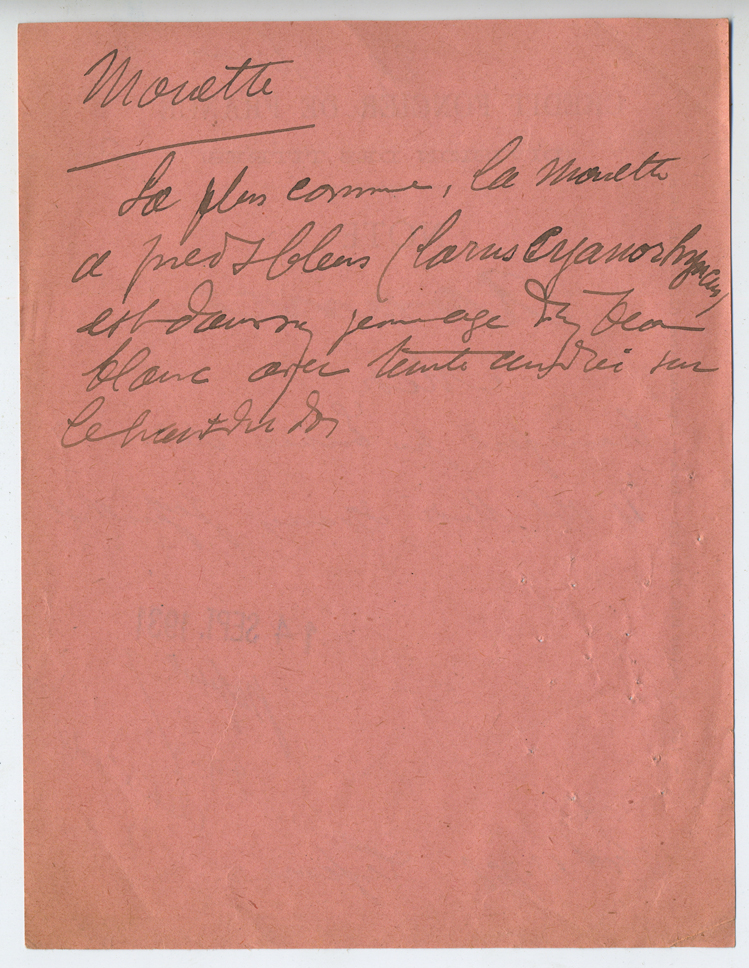 Mouette
La plus connue, la mouette
a pieds bleus (larus Cyanorhyncus)
est d'aussi plumage d'un beau
blanc avec teinte cendrée sur
le haut du dos